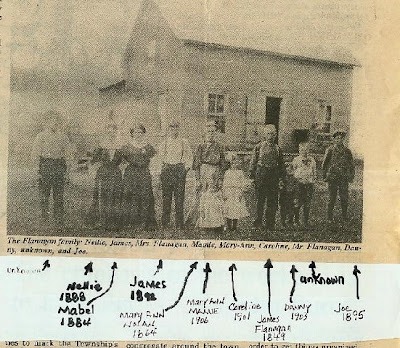 The Flanagan family: Nellie, James, Mrs. Flanagan, Maude, Mary-Ann, Caroline, Mr. Flanagan, Dan-
ny, unknown, and Joe.
Unknown
Nellie
1888
Mabel
1884
James
1892
Mary Ann
Nolan
1864
Mary Ann
MAUDE
1906
Caroline
1901
James
Flanagan
1849
Danny
1903
unknown
Joe
1895
ties to mark the Township's
congregate around the town
order to see things